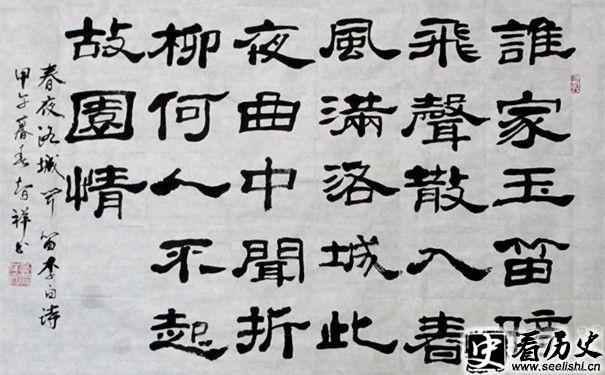 誰家玉笛暗
飛聲散入春
風滿洛城此
夜曲中聞折
柳何人不起
故園情
春夜洛城聞笛李白詩
甲午暮春智祥书
史
看历史
www.seelishi.cn